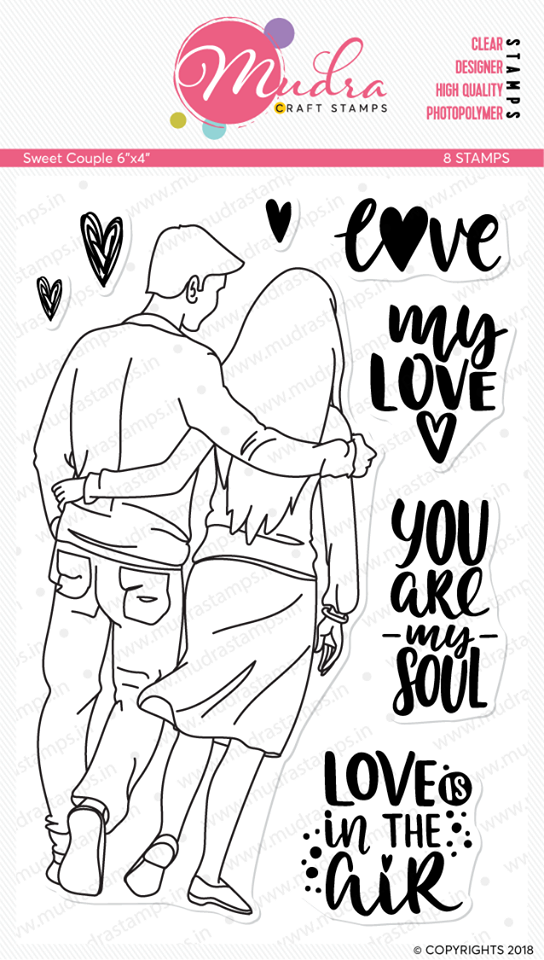 Mudra
CRAFT STAMPS
CLEAR
DESIGNER
HIGH QUALITY
PHOTOPOLYMER
STAMPS
Sweet Couple 6"x4"
8 STAMPS
love
my
LOVE
YOU
ARE
-my-
SOUL
LOVE IS
in THE
AIR
www.mudrastamps.in
© COPYRIGHTS 2018